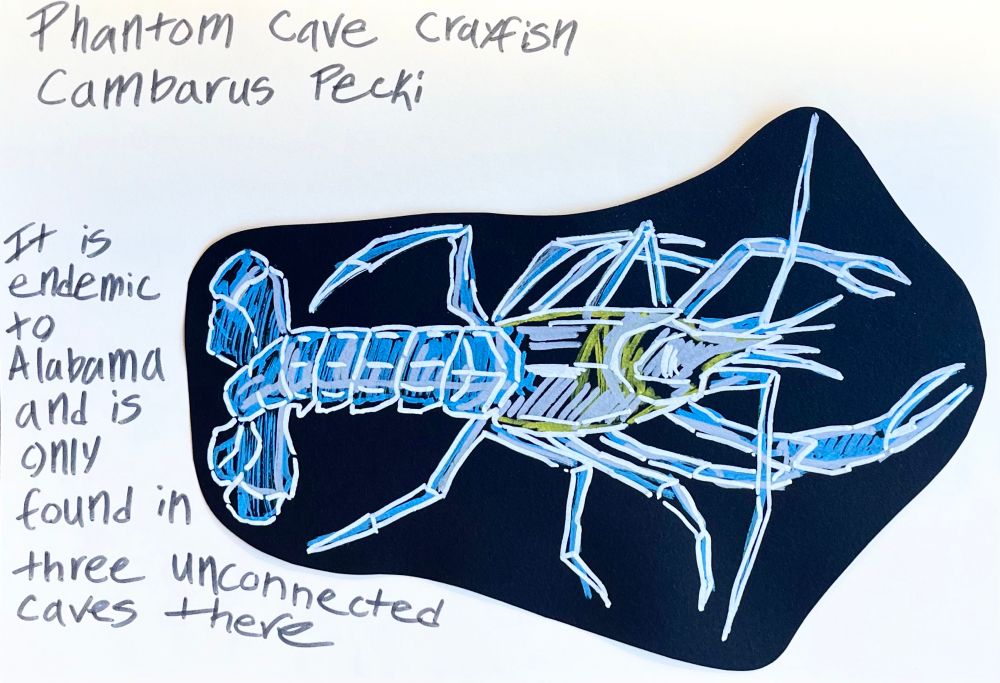 Phantom Cave Crayfish
Cambarus Pecki
It is
endemic
to
Alabama
and is
only
found in
three unconnected
caves there